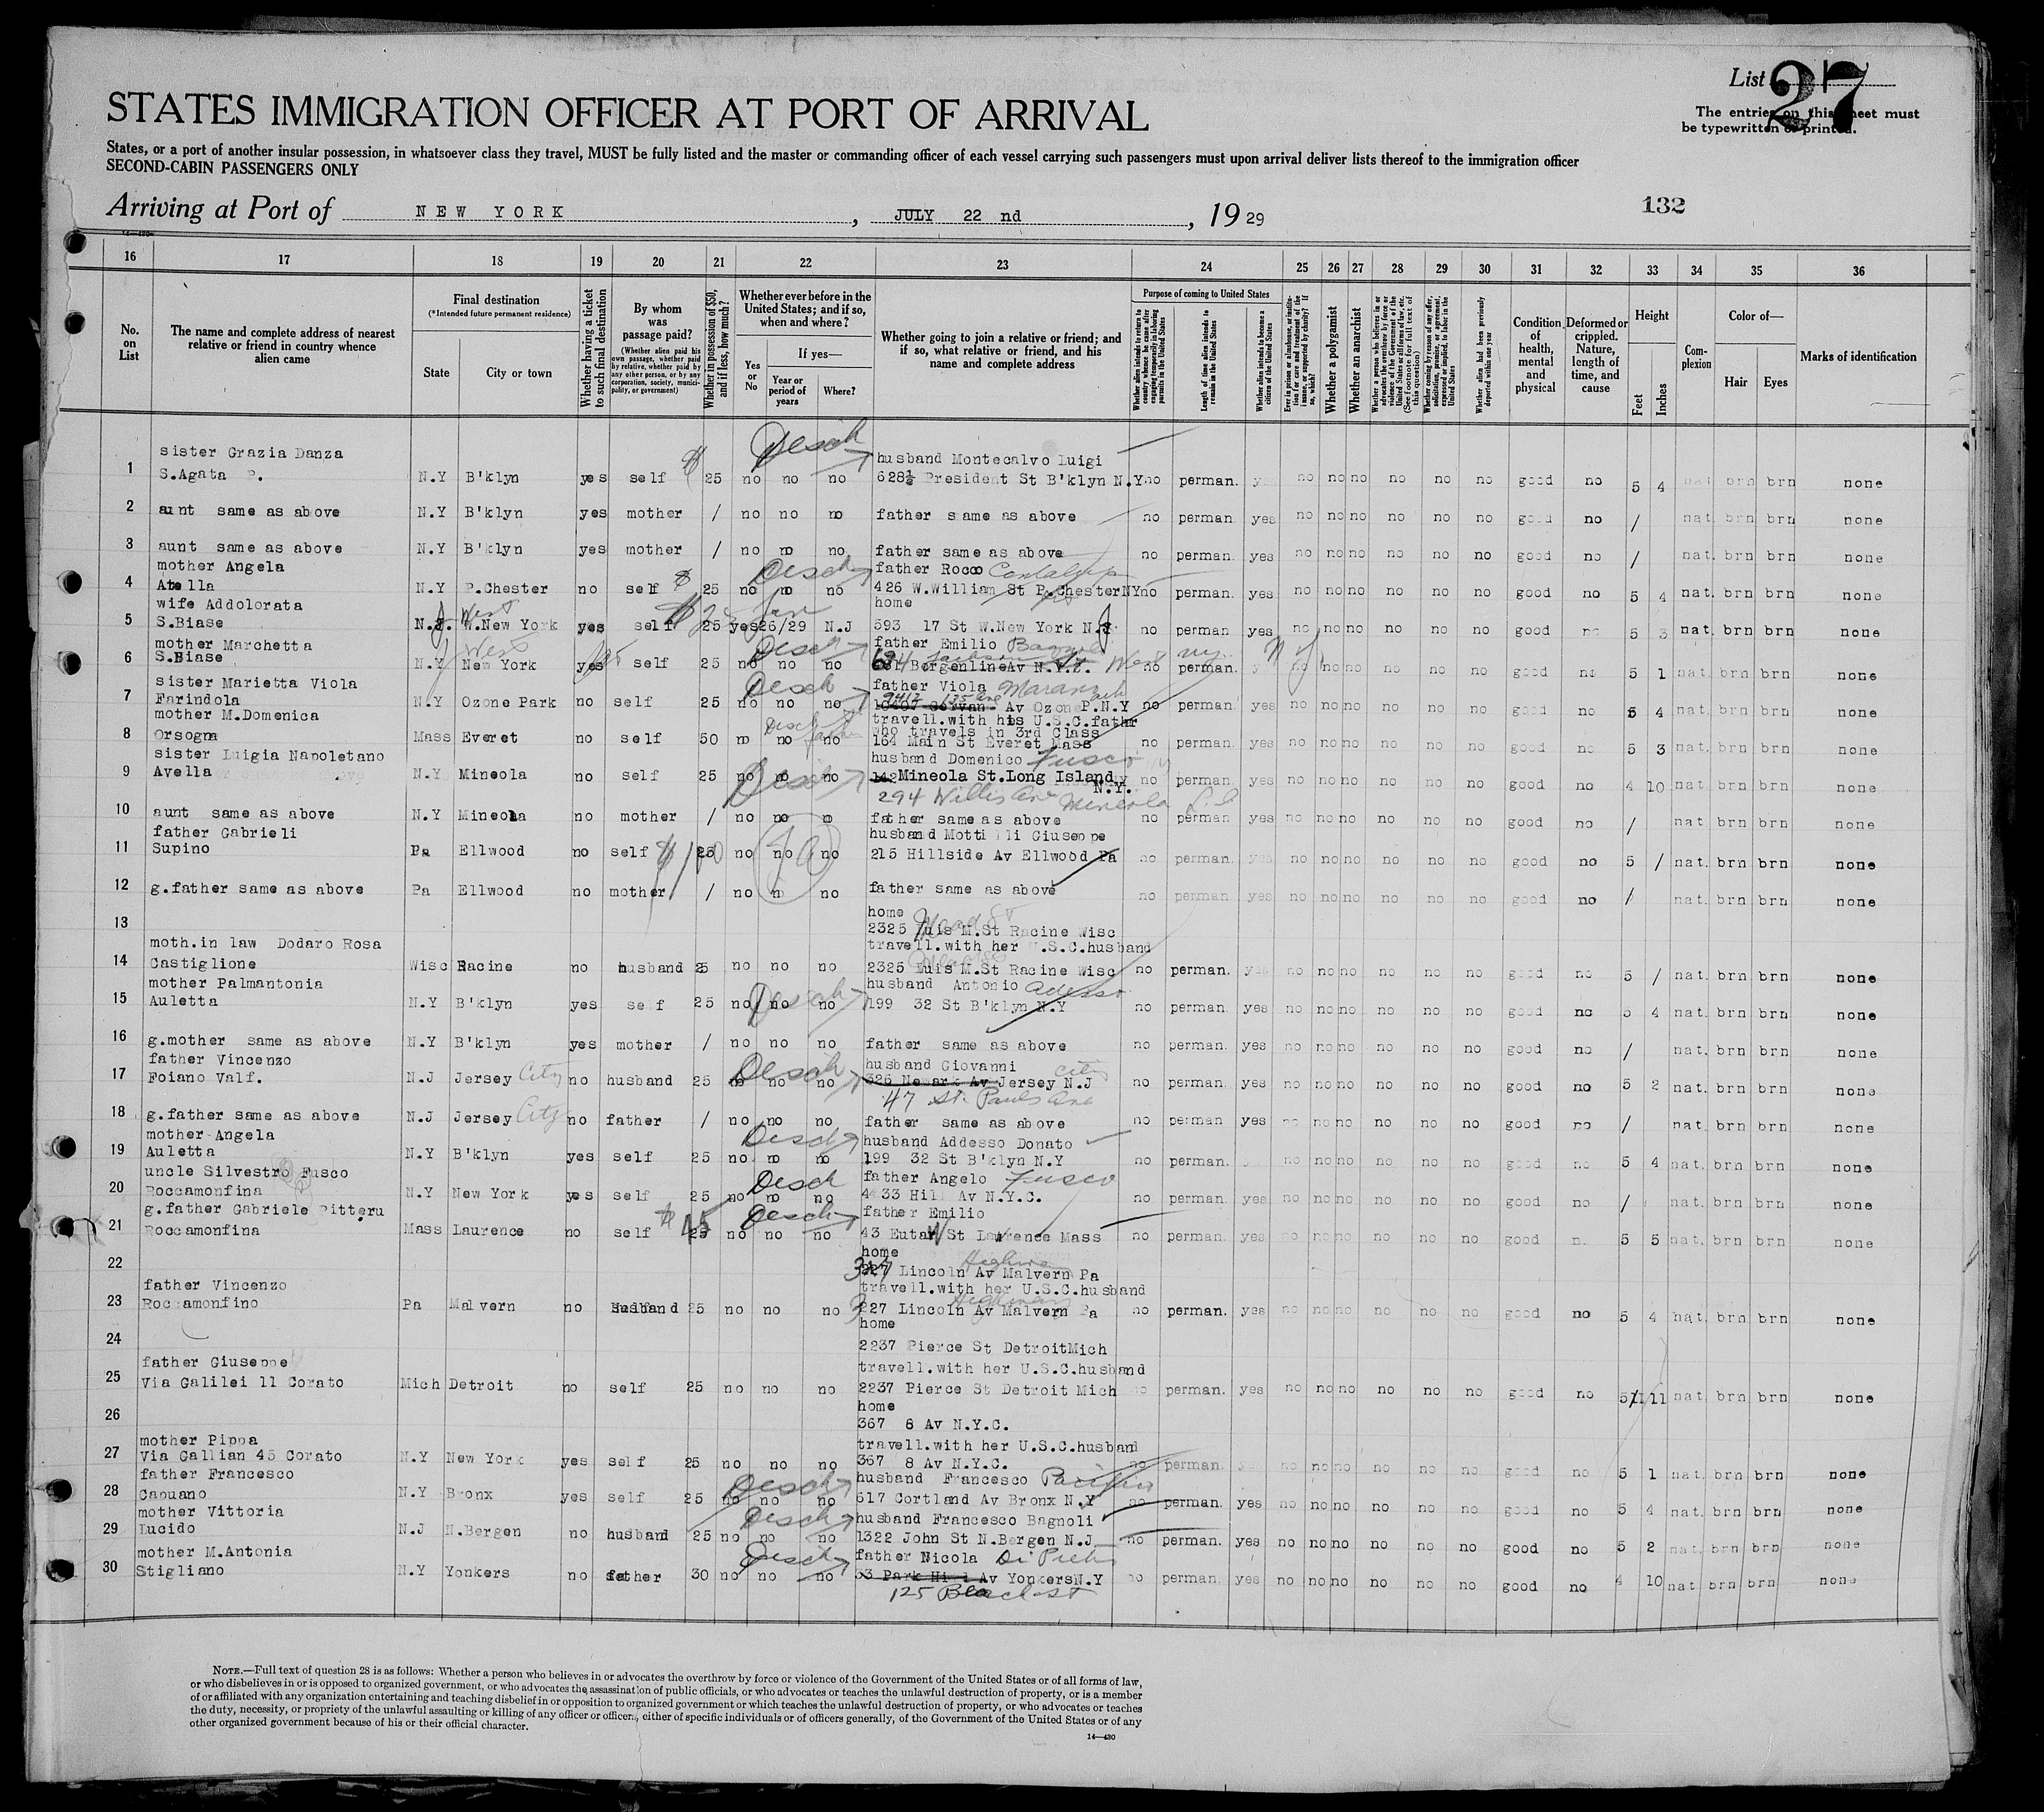 List 27
The entries on this sheet must
be typewritten or printed.
STATES IMMIGRATION OFFICER AT PORT OF ARRIVAL
States, or a port of another insular possession, in whatsoever class they travel, MUST be fully listed and the master or commanding officer of each vessel carrying such passengers must upon arrival deliver lists thereof to the immigration officer
SECOND-CABIN PASSENGERS ONLY
Arriving at Port of NEW YORK, JULY 22 nd, 19 29
132
16 17 18 19 20 21 22 23 24 25 26 27 28 29 30 31 32 33 34 35 36
No. on List
The name and complete address of nearest relative or friend in country whence alien came
Final destination
(*Intended future permanent residence)
State
City or town
Whether having a ticket to such final destination
By whom was passage paid?
(Whether alien paid his own passage, whether paid by relative, whether paid by any other person, or by any corporation, society, municipality, or government)
Whether in possession of $50, and if less, how much?
Whether ever before in the United States; and if so, when and where?
Yes or No
If yes—
Year or period of years
Where?
Whether going to join a relative or friend; and if so, what relative or friend, and his name and complete address
Purpose of coming to United States
Whether alien intends to return to country whence he came after engaging temporarily in laboring pursuits in the United States
Length of time alien intends to remain in the United States
Whether alien intends to become a citizen of the United States
Whether a polygamist
Whether an anarchist
Whether alien had been previously deported within one year
Condition of health, mental and physical
Deformed or crippled. Nature, length of time, and cause
Height
Feet
Inches
Complexion
Color of—
Hair
Eyes
Marks of identification
sister Grazia Danza Desch husband Montecalvo Luigi
1 S.Agata P. N.Y B'klyn yes self $ 25 no no no 628½ President St B'klyn N.Y no perman. no no no no no no good no 5 4 nat brn brn none
2 aunt same as above N.Y B'klyn yes mother / no no no father same as above no perman. yes no no no no no no good no / nat. brn brn none
3 aunt same as above N.Y B'klyn yes mother / no no no father same as above no perman. yes no no no no no no good no / nat. brn brn none
mother Angela Desch father Rocco
4 Atella N.Y P.Chester no self $ 25 no no no 426 W.William St P.Chester NY no perman. yes no no no no no no good no 5 4 nat. brn brn none
wife Addolorata home
5 S.Biase N.J. W.New York West yes self 25 yes 26/29 N.J 593 17 St W.New York N.J no perman yes no no no no no no good no 5 3 nat. brn brn none
mother Marchetta Desch father Emilio
6 S.Biase N.Y West New York yes self 25 no no no Bergenline Av no perman. no no no no no no good no 5 1 nat. brn brn none
sister Marietta Viola Desch father Viola
7 Farindola N.Y Ozone Park no self 25 no no no Av Ozone P.N.Y no perman. yes no no no no no no good no 5 4 nat. brn brn none
mother M.Domenica travell.with his U.S.C.father
who travels in 3rd Class
8 Orsogna Mass Everet no self 50 no no no 164 Main St Everet Mass no perman. yes no no no no no no good no 5 3 nat. brn brn none
sister Luigia Napoletano husband Domenico Fusco
9 Avella N.Y Mineola no self 25 no no no Desch Mineola St.Long Island N.Y. no perman. yes no no no no no no good no 4 10 nat. brn brn none
294 Willis Ave Mineola L.I
10 aunt same as above N.Y Mineola no mother / no no no father same as above no perman yes no no no no no no good no / nat. brn brn none
father Gabrieli husband Giuseppe
11 Supino Pa Ellwood no self $100 25 no no no 215 Hillside Av Ellwood Pa no perman. yes no no no no no no good no 5 / nat. brn brn none
12 g.father same as above Pa Ellwood no mother / no no no father same as above no perman yes no no no no no no good no / nat. brn brn none
home
13 2325 M.St Racine Wisc
moth.in law Dodaro Rosa travell.with her U.S.C.husband
14 Castiglione Wisc Racine no husband 25 no no no 2325 M.St Racine Wisc no perman. no no no no no no good no 5 / nat. brn brn none
mother Palmantonia husband Antonio
15 Auletta N.Y B'klyn yes self 25 no no no Desch 199 32 St B'klyn N.Y no perman. yes no no no no no no good no 5 4 nat. brn brn none
16 g.mother same as above N.Y B'klyn yes mother / no no no father same as above no perman. yes no no no no no no good no / nat. brn brn none
father Vincenzo husband Giovanni
17 Foiano Valf. N.J Jersey City no husband 25 no no no Desch 326 Newark Av Jersey City N.J no perman. yes no no no no no no good no 5 2 nat. brn brn none
47 St. Pauls Ave
18 g.father same as above N.J Jersey City no father / no no no father same as above no perman yes no no no no no no good no / nat. brn brn none
mother Angela Desch husband Addesso Donato
19 Auletta N.Y B'klyn yes self 25 no no no 199 32 St B'klyn N.Y no perman. no no no no no no good no 5 4 nat. brn brn none
uncle Silvestro Fusco Desch father Angelo Fusco
20 Roccamonfina N.Y New York yes self 25 no no no 4 33 Hill Av N.Y.C. no perman. yes no no no no no no good no / nat. brn brn none
g.father Gabriele Pitteru Desch father Emilio
21 Roccamonfina Mass Laurence no self $ 15 25 no no no 43 Eutaw St Lawrence Mass no perman. yes no no no no no no good 5 5 nat. brn brn none
home
22 327 Lincoln Av Highway Malvern Pa
father Vincenzo travell.with her U.S.C.husband
23 Roccamonfino Pa Malvern no husband 25 no no no 327 Lincoln Av Highway Malvern Pa no perman. yes no no no no no no good no 5 4 nat. brn brn none
home
24 2237 Pierce St Detroit Mich
father Giuseppe travell.with her U.S.C.husband
25 Via Galilei 11 Corato Mich Detroit no self 25 no no no 2237 Pierce St Detroit Mich no perman. yes no no no no no no good no 5 11 nat. brn brn none
home
26 367 8 Av N.Y.C.
mother Pippa travell.with her U.S.C.husband
27 Via Gallian 45 Corato N.Y New York yes self 25 no no no 367 8 Av N.Y.C. no perman. no no no no no no good no 5 1 nat. brn brn none
father Francesco Desch husband Francesco
28 Capuano N.Y Bronx yes self 25 no no no 617 Cortland Av Bronx N.Y no perman. yes no no no no no no good no 5 4 nat. brn brn none
mother Vittoria Desch husband Francesco Bagnoli
29 Lucido N.J N.Bergen no husband 25 no no no 1322 John St N.Bergen N.J no perman. yes no no no no no no good no 5 2 nat. brn brn none
mother M.Antonia Desch father Nicola
30 Stigliano N.Y Yonkers no father 30 no no no Av Yonkers N.Y no perman. yes no no no no no no good no 4 10 nat brn brn none
125
NOTE.—Full text of question 28 is as follows: Whether a person who believes in or advocates the overthrow by force or violence of the Government of the United States or of all forms of law,
or who disbelieves in or is opposed to organized government, or who advocates the assassination of public officials, or who advocates or teaches the unlawful destruction of property, or is a member
of or affiliated with any organization entertaining and teaching disbelief in or opposition to organized government or which teaches the unlawful destruction of property, or who advocates or teaches
the duty, necessity, or propriety of the unlawful assaulting or killing of any officer or officers, either of specific individuals or of officers generally, of the Government of the United States or of any
other organized government because of his or their official character.
14—430